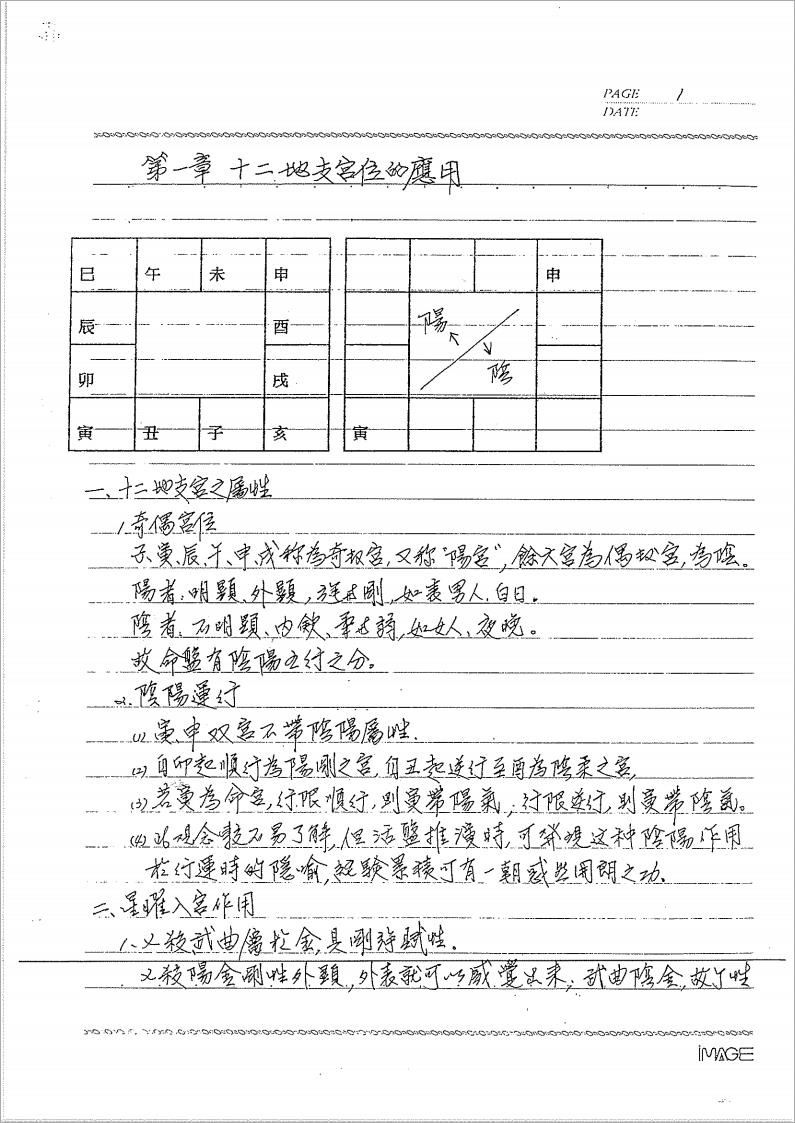 PAGE 1
DATE
第一章 十二地支宮位的應用
巳 午 未 申 申
辰 酉 陽
卯 戌 陰
寅 丑 子 亥 寅
一、十二地支宮之屬性
1.奇偶宮位
子、寅、辰、午、申、戌称為奇数宮,又称"陽宮",餘六宮為偶数宮,為陰。
陽者:明顯、外顯,剛,如表男人、白日。
陰者:不明顯、內歛、如女人、夜晚。
故命盤有陰陽五行之分。
2.陰陽運行
(1)寅、申双宮不帶陰陽屬性.
(2)自卯起順行為陽剛之宮,自丑起逆行至酉為陰柔之宮,
(3)若寅為命宮,行限順行,則寅帶陽氣;行限逆行,則寅帶陰氣。
(4)此观念較不易了解,但活盤推演時,可發現这种陰陽作用
於行運時的隐喻,経験累積可有一朝或豁開朗之功.
二、星曜入宮作用
1、七殺武曲屬於金,具剛特性.
七殺陽金剛性外顯,外表就可以感覺出來;武曲陰金,故丫性
iMAGE